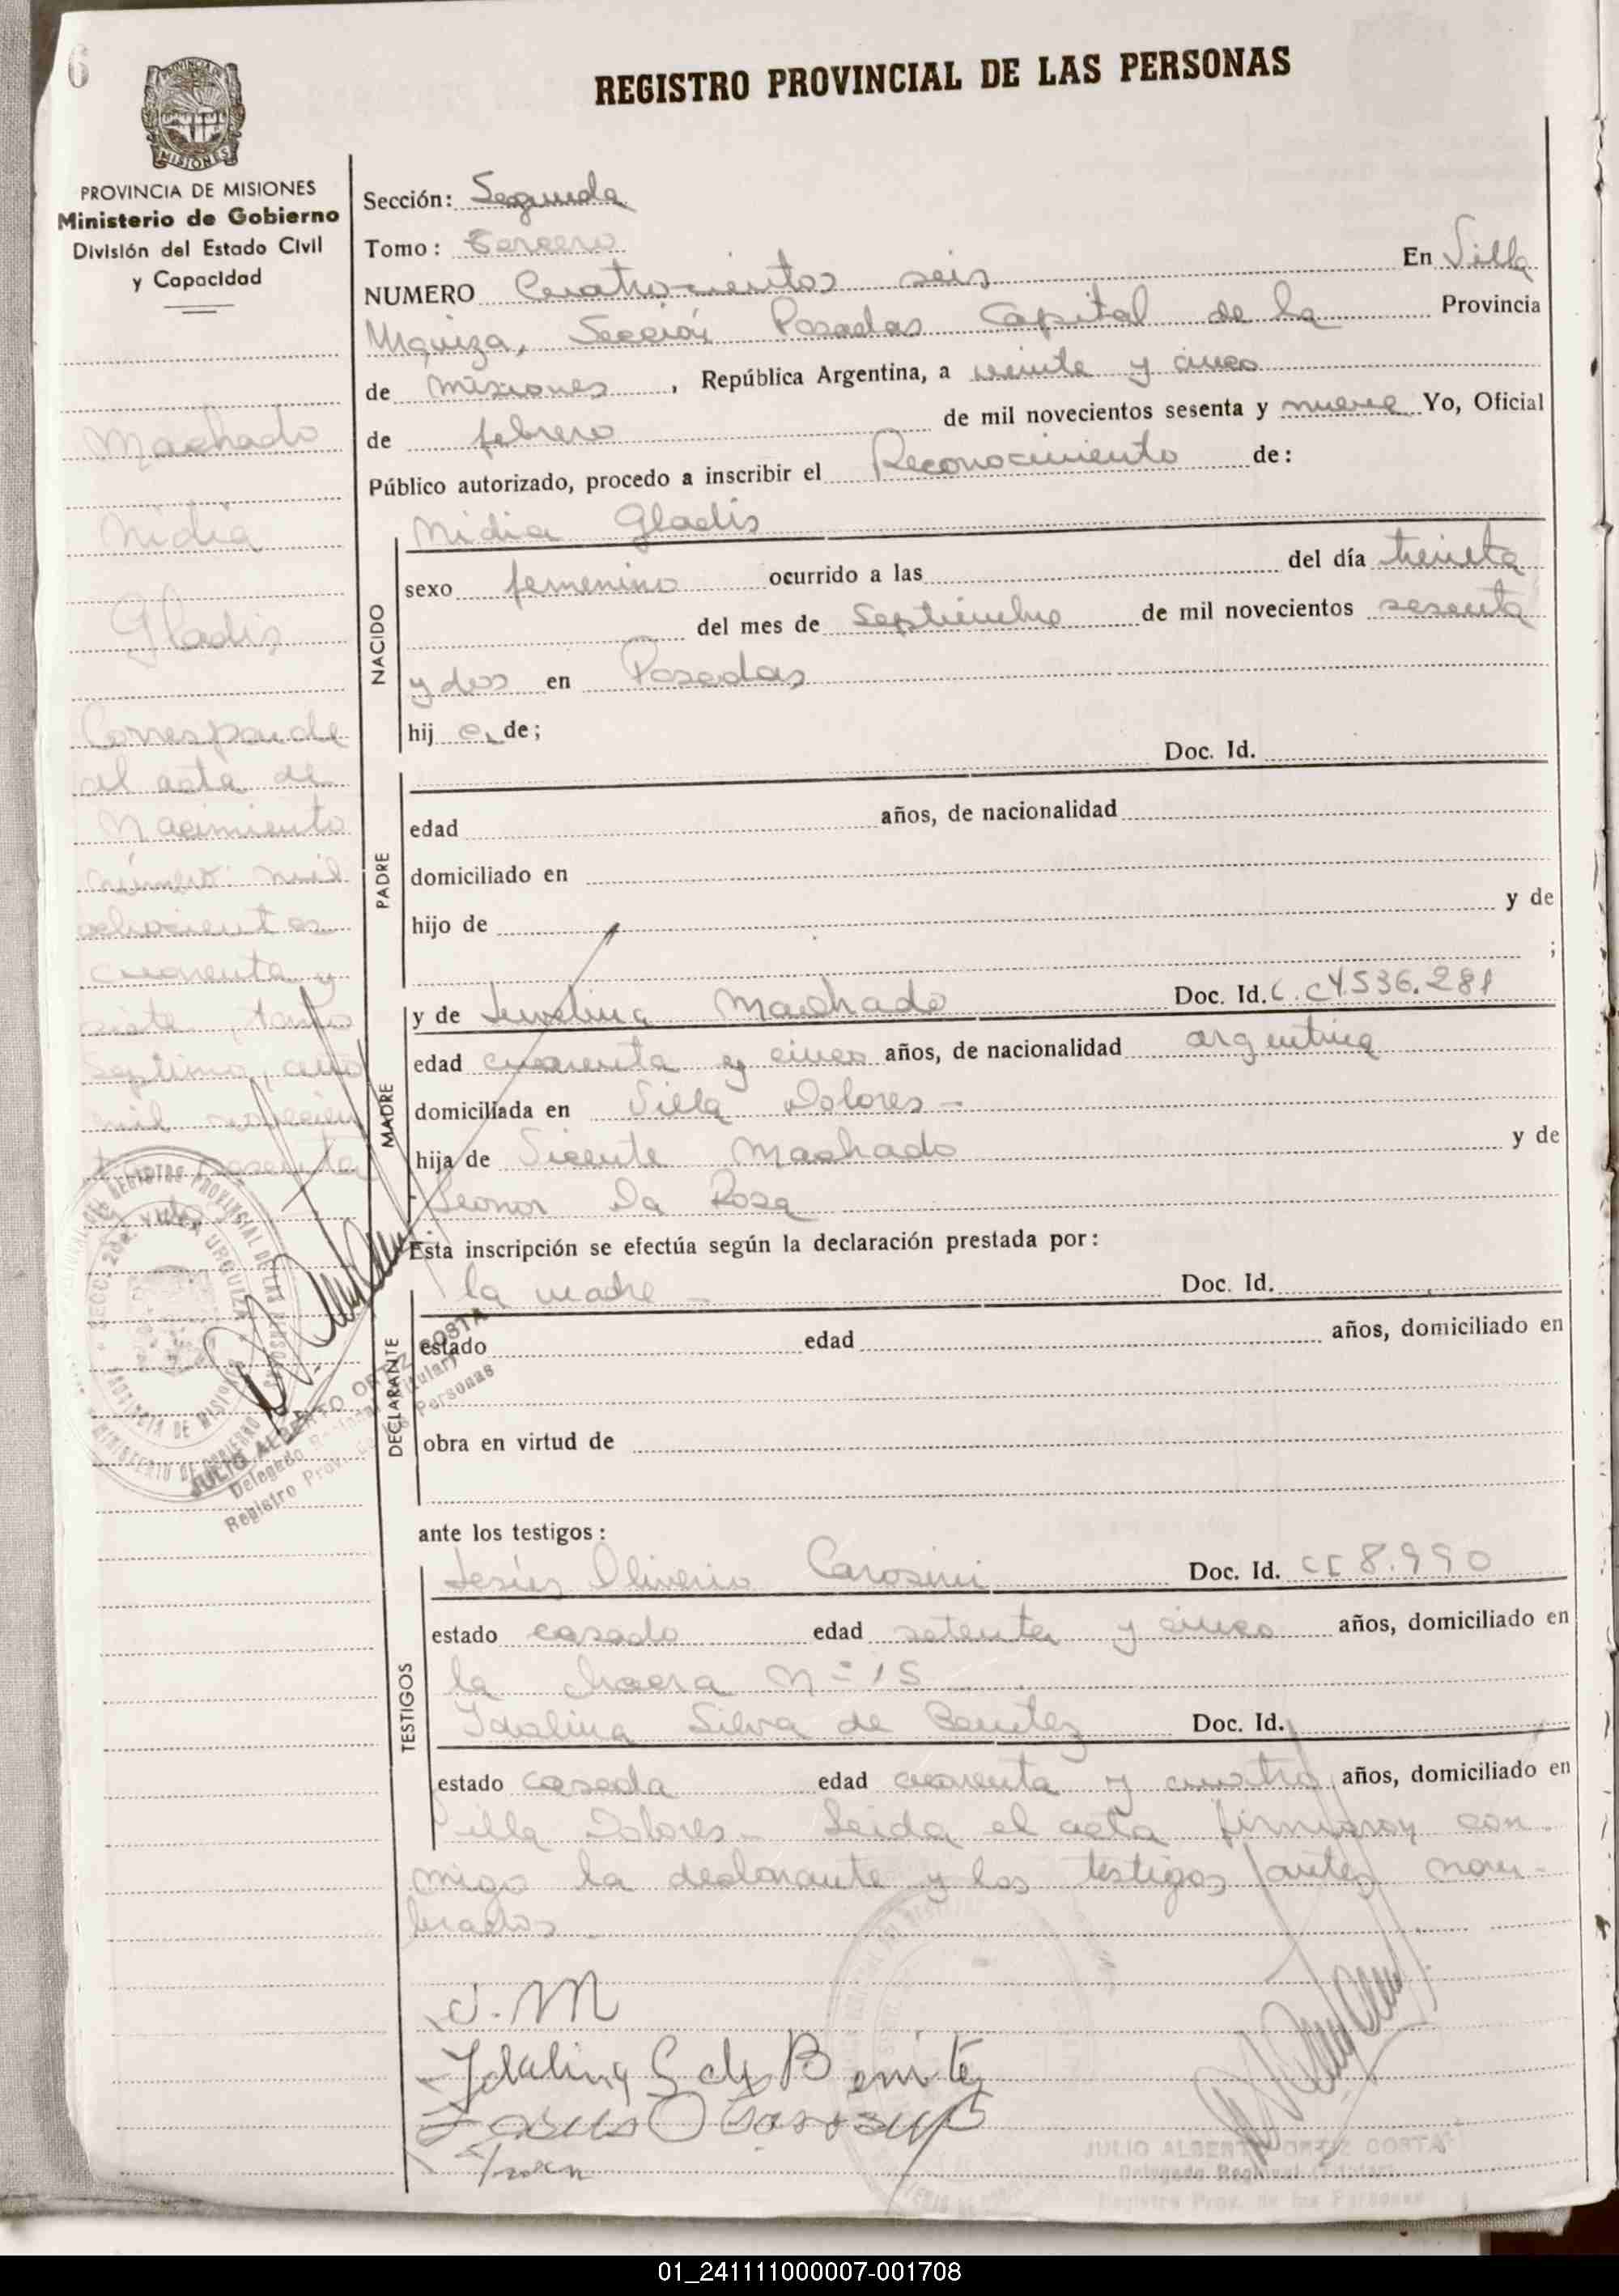 6
REGISTRO PROVINCIAL DE LAS PERSONAS
PROVINCIA DE MISIONES
Ministerio de Gobierno
División del Estado Civil
y Capacidad
Machado
Nidia
Gladis
Corresponde
al acta de
Nacimiento
número mil
ochocientos
cuarenta y
siete, tomo
Septimo, año
mil novecien
tos sesenta
y dos
Sección: Segunda
Tomo: Tercero
NUMERO Cuatrocientos seis En Villa
Urquiza, Sección Posadas Capital de la Provincia
de Misiones, República Argentina, a veinte y cinco
de febrero de mil novecientos sesenta y nueve Yo, Oficial
Público autorizado, procedo a inscribir el Reconocimiento de:
NACIDO
Nidia Gladis
sexo femenino ocurrido a las del día treinta
del mes de Septiembre de mil novecientos sesenta
y dos en Posadas
hij a de;
PADRE
Doc. Id.
edad años, de nacionalidad
domiciliado en
hijo de y de
;
MADRE
y de Machado Doc. Id. C. C 4.536.281
edad cuarenta y cinco años, de nacionalidad argentina
domiciliada en Villa Dolores -
hija de Vicente Machado y de
Leonor Da Rosa
Esta inscripción se efectúa según la declaración prestada por:
DECLARANTE
la madre - Doc. Id.
estado edad años, domiciliado en
obra en virtud de
ante los testigos:
TESTIGOS
Jesús Oliverio Carosini Doc. Id. CI 8.990
estado casado edad setenta y cinco años, domiciliado en
la chacra Nº 15
Idalina Silva de Benitez Doc. Id.
estado casada edad cuarenta y cuatro años, domiciliado en
Villa Dolores. Leida el acta firmaron con
migo la declarante y los testigos antes nom-
brados
J. M
Idalina S de Benitez
SECC. 2da. VILLA URQUIZA
PROVINCIA DE MISIONES
MINISTERIO DE GOBIERNO
JULIO ALBERTO ORTIZ COSTA
Delegado Regional (Titular)
Registro Prov. de las Personas
JULIO ALBERTO ORTIZ COSTA
Delegado Regional (Titular)
Registro Prov. de las Personas
01_241111000007-001708